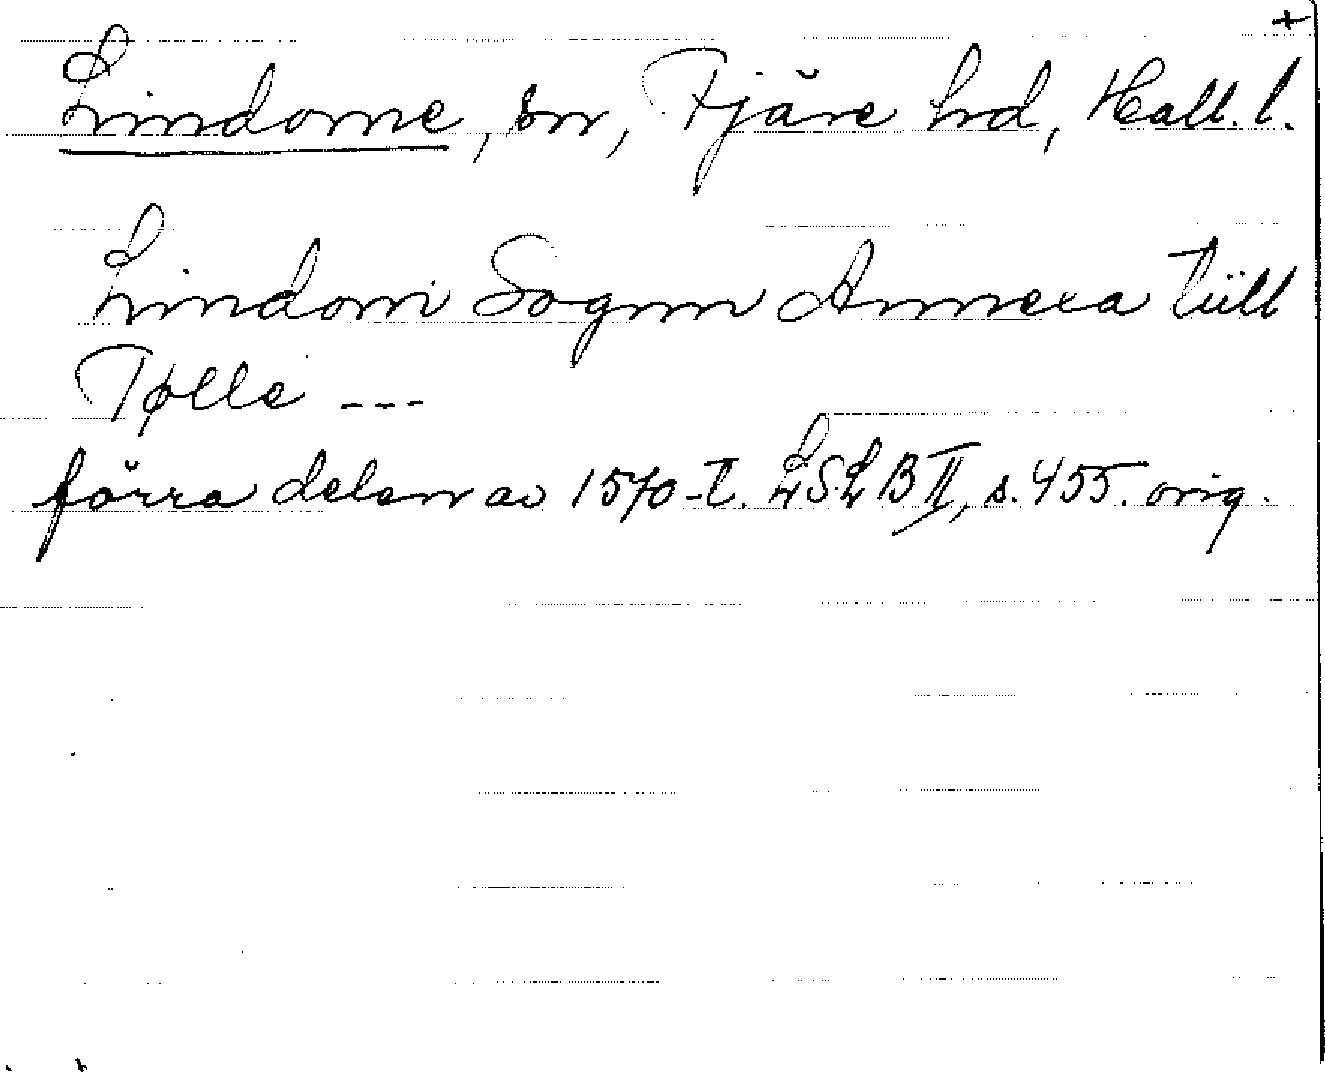 +
Lindome, sn, Fjäre hd, Hall. l.
Lindom Sognn Annexa tiill
Tølle ---
förra delen av 1570-t. LSLB II, s. 455. orig.